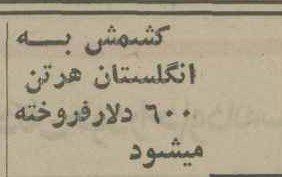 کشمش بــه
انگلستان هرتن
٦٠٠ دلارفروخته
میشود